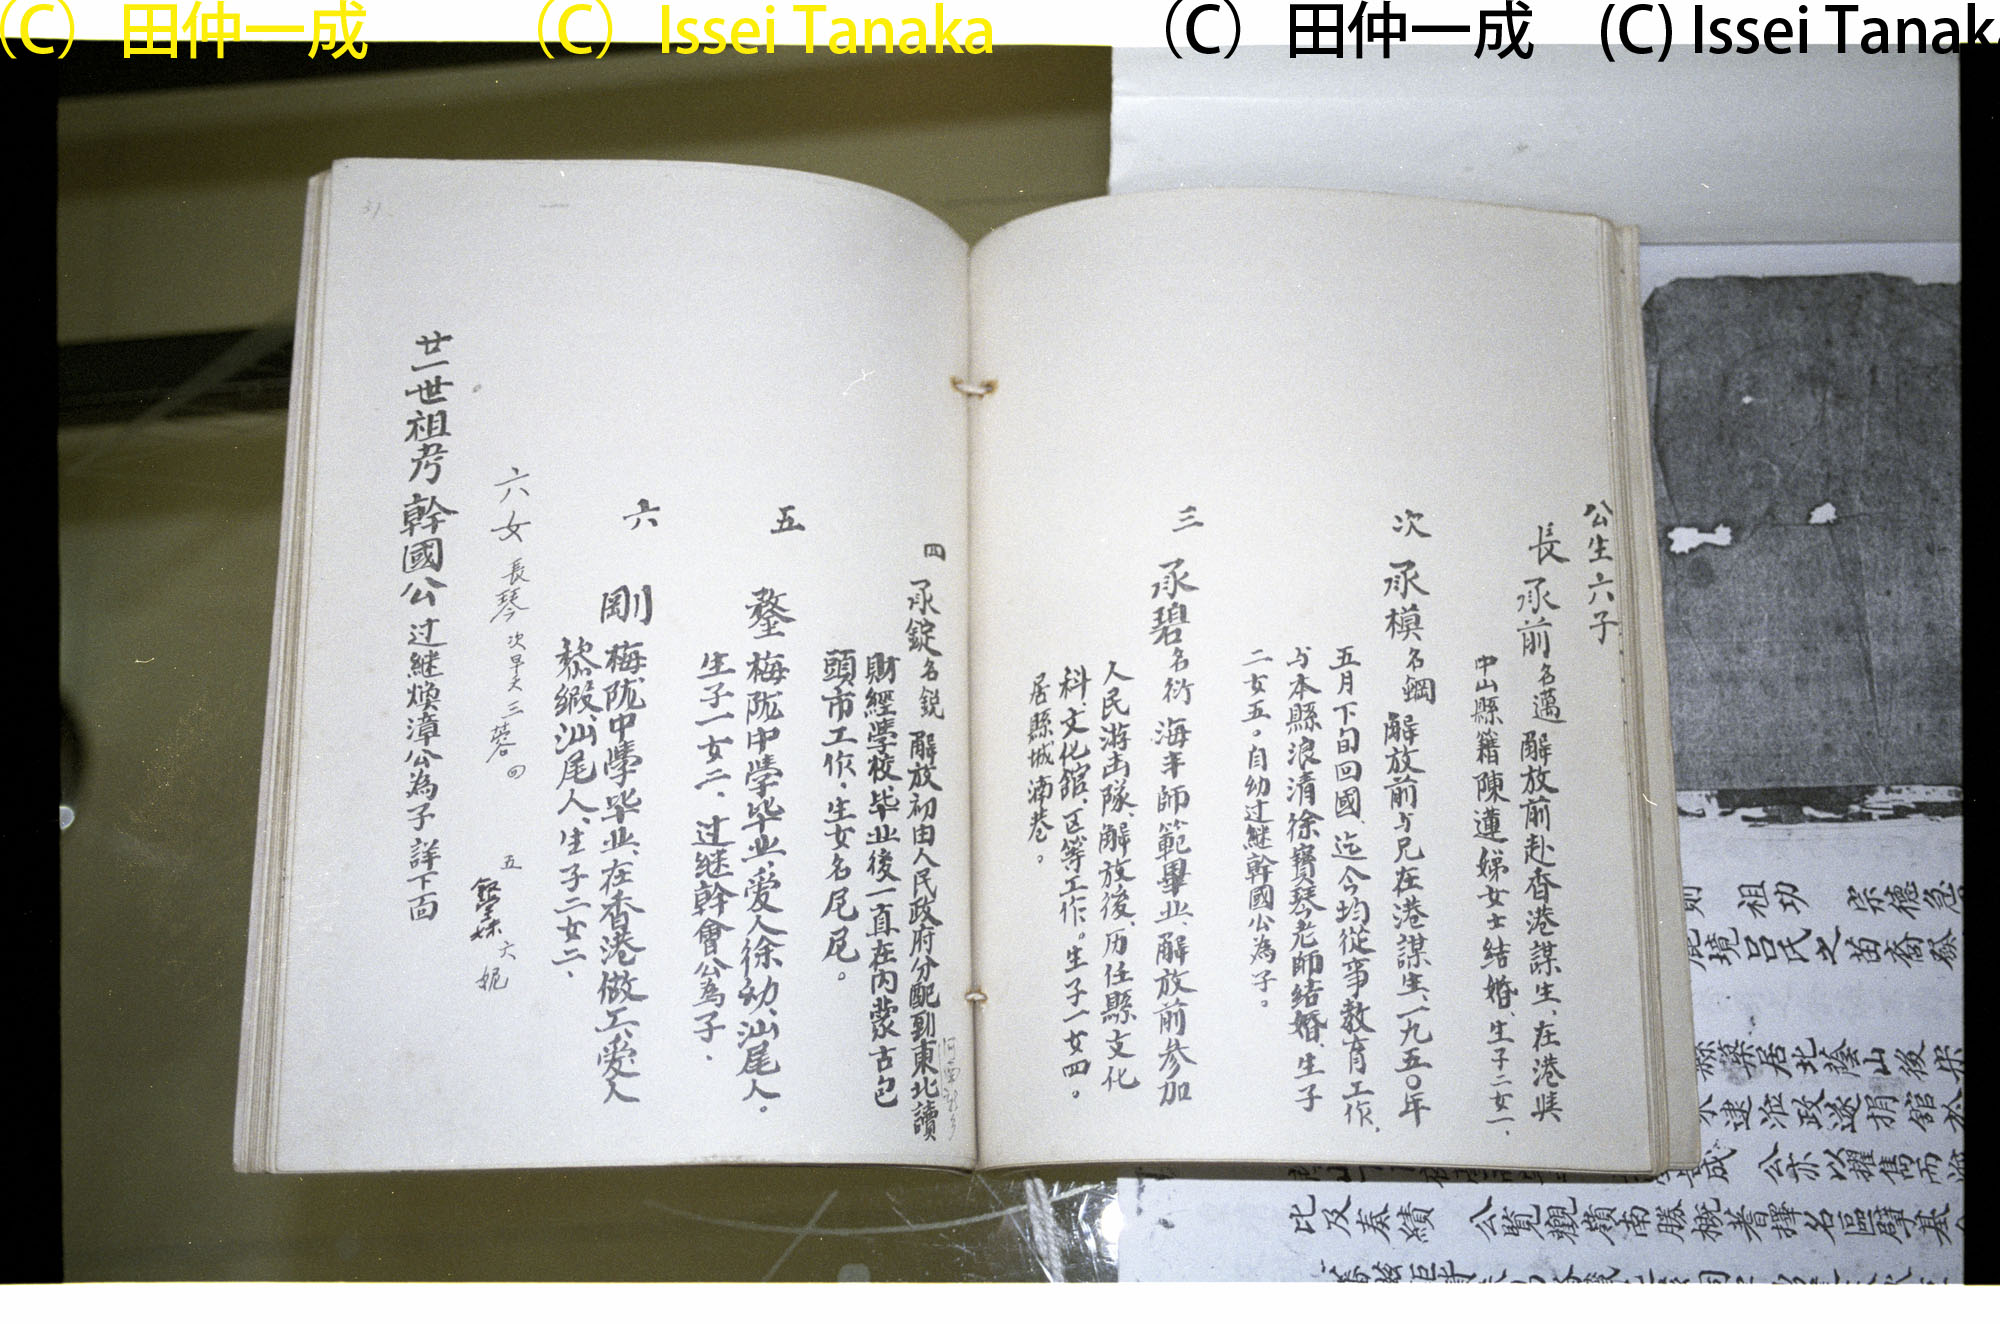 （C） 田仲一成 （C） Issei Tanaka （C） 田仲一成 (C) Issei Tanak
公生六子
長 承前 名邁 解放前赴香港謀生、在港與
中山縣籍陳蓮娣女士结婚、生子二女一、
次 承模 名鋼 解放前与兄在港謀生、一九五〇年
五月下旬回國、迄今均從事教育工作、
与本縣浪清徐寶琴老師结婚、生子
二女五。自幼过継幹國公為子。
三 承碧 名衍 海丰師範畢业、解放前参加
人民游击隊、解放後、历任縣文化
科、文化館、区等工作。生子一女四。
居縣城湳巷。
四 承錠 名銳 解放初由人民政府分配到東北讀
財經學校、毕业後一直在内蒙古包
頭市工作、生女名尼尼。
五 鏊 梅陇中學毕业、爱人徐幼、汕尾人。
生子一女二、过継幹會公為子、
六 剛 梅陇中學毕业、在香港做工、爱人
黎緞、汕尾人、生子二女二、
六女 長琴 次早 三蓉 四 五 六妮
廿一世祖考幹國公过継煥漳公為子詳下面
31
祖功 宗德
境呂氏之苗裔
築居北蔭山後
水建 政遂捐館
公亦以
比及奏績 公覧觀嶺南勝概著擇名區肇基